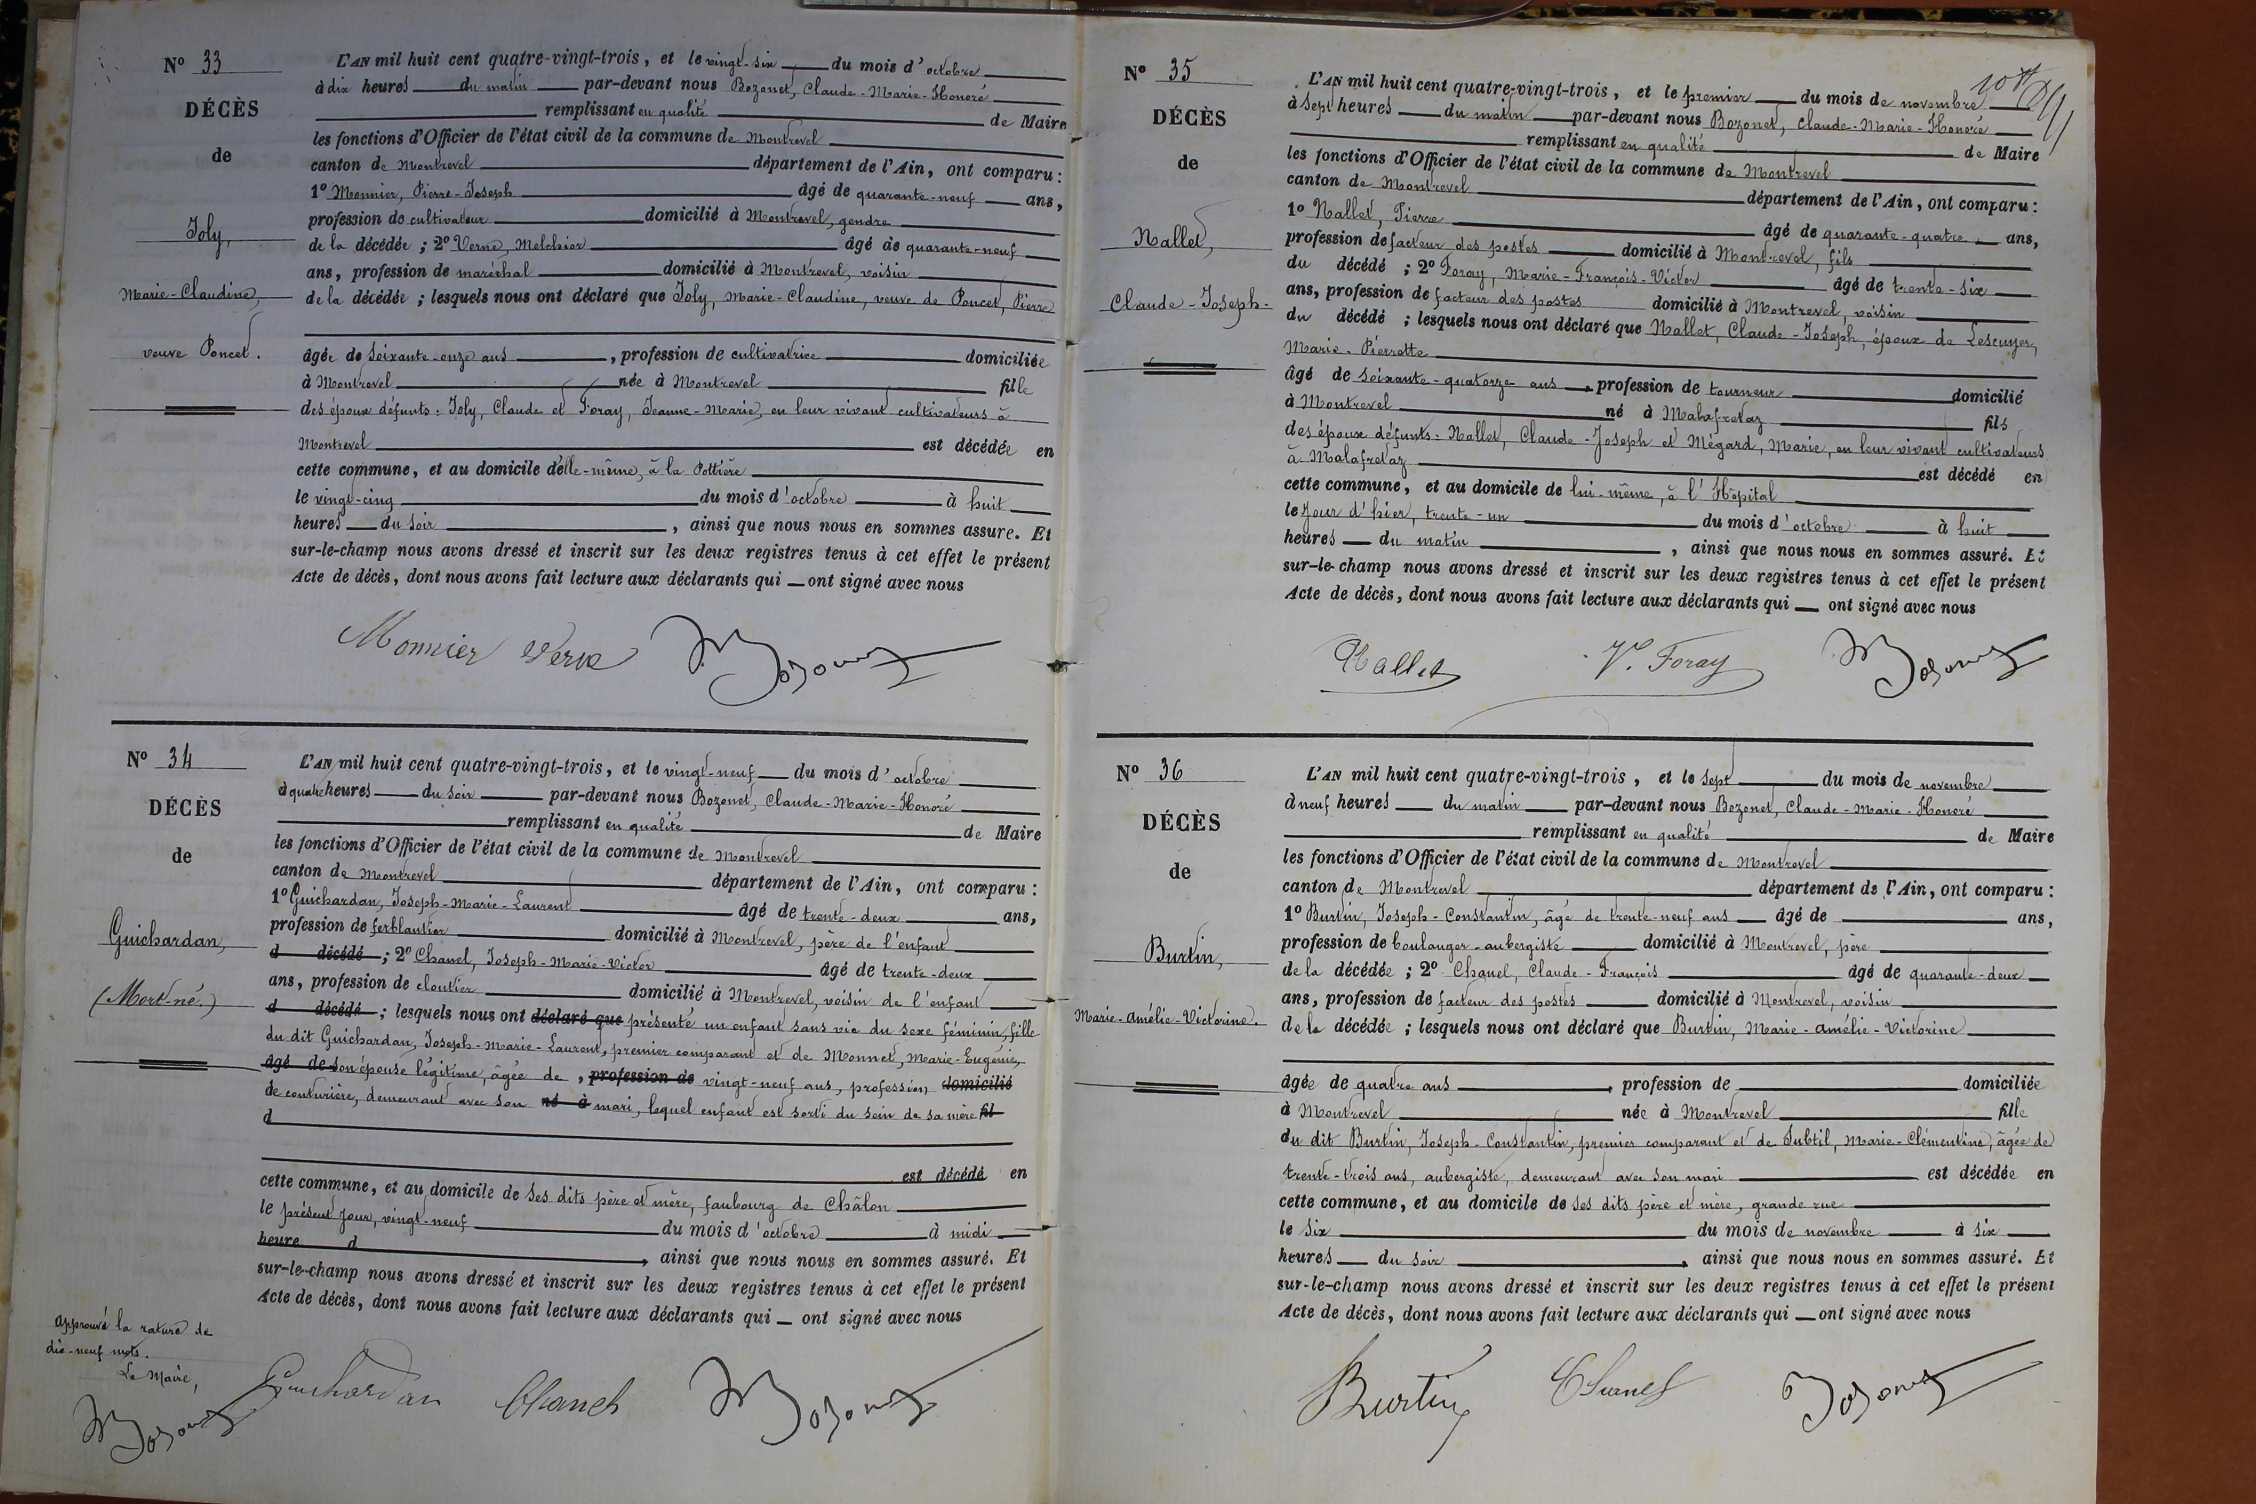 Nº 33
DÉCÈS
de
Joly,
Marie-Claudine,
veuve Poncet.
L'AN mil huit cent quatre-vingt-trois, et le vingt-six du mois d'octobre
à dix heures du matin par-devant nous Bozonet, Claude-Marie-Honoré
remplissant en qualité de Maire
les fonctions d'Officier de l'état civil de la commune de Montrevel
canton de Montrevel département de l'Ain, ont comparu :
1º Monnier, Pierre-Joseph âgé de quarante-neuf ans,
profession de cultivateur domicilié à Montrevel, gendre
de la décédée ; 2º Verne, Melchior âgé de quarante-neuf
ans, profession de maréchal domicilié à Montrevel, voisin
de la décédée ; lesquels nous ont déclaré que Joly, Marie-Claudine, veuve de Poncet, Pierre
âgée de soixante-onze ans, profession de cultivatrice domiciliée
à Montrevel née à Montrevel fille
des époux défunts : Joly, Claude et Foray, Jeanne-Marie, en leur vivant cultivateurs à
Montrevel est décédée en
cette commune, et au domicile d'elle-même, à la Pottière
le vingt-cinq du mois d'octobre à huit
heures du soir, ainsi que nous nous en sommes assuré. Et
sur-le-champ nous avons dressé et inscrit sur les deux registres tenus à cet effet le présent
Acte de décès, dont nous avons fait lecture aux déclarants qui ont signé avec nous
Monnier Verne Bozonet
Nº 34
DÉCÈS
de
Guichardan,
(Mort-né.)
L'AN mil huit cent quatre-vingt-trois, et le vingt-neuf du mois d'octobre
à quatre heures du soir par-devant nous Bozonet, Claude-Marie-Honoré
remplissant en qualité de Maire
les fonctions d'Officier de l'état civil de la commune de Montrevel
canton de Montrevel département de l'Ain, ont comparu :
1º Guichardan, Joseph-Marie-Laurent âgé de trente-deux ans,
profession de ferblantier domicilié à Montrevel, père de l'enfant
d décédé ; 2º Chanel, Joseph-Marie-Victor âgé de trente-deux
ans, profession de cloutier domicilié à Montrevel, voisin de l'enfant
d décédé ; lesquels nous ont déclaré que présenté un enfant sans vie du sexe féminin, fille
du dit Guichardan, Joseph-Marie-Laurent, premier comparant et de Monnet, Marie-Eugénie,
âgé de son épouse légitime, âgée de, profession de vingt-neuf ans, profession domicilié
de couturière, demeurant avec son né à mari, lequel enfant est sorti du sein de sa mère fil
d
est décédé en
cette commune, et au domicile de ses dits père et mère, faubourg de Châlon
le présent jour, vingt-neuf du mois d'octobre à midi
heure d, ainsi que nous nous en sommes assuré. Et
sur-le-champ nous avons dressé et inscrit sur les deux registres tenus à cet effet le présent
Acte de décès, dont nous avons fait lecture aux déclarants qui ont signé avec nous
Approuvé la rature de
dix-neuf mots.
Le Maire,
Bozonet
Guichardan Chanel Bozonet
Nº 35
DÉCÈS
de
Nallet,
Claude-Joseph-
L'AN mil huit cent quatre-vingt-trois, et le premier du mois de novembre
à sept heures du matin par-devant nous Bozonet, Claude-Marie-Honoré
remplissant en qualité de Maire
les fonctions d'Officier de l'état civil de la commune de Montrevel
canton de Montrevel département de l'Ain, ont comparu :
1º Nallet, Pierre âgé de quarante-quatre ans,
profession de facteur des postes domicilié à Montrevel, fils
du décédé ; 2º Foray, Marie-François-Victor âgé de trente-six
ans, profession de facteur des postes domicilié à Montrevel, voisin
du décédé ; lesquels nous ont déclaré que Nallet, Claude-Joseph, époux de Lescuyer,
Marie-Pierrette
âgé de soixante-quatorze ans, profession de tourneur domicilié
à Montrevel né à Malafretaz fils
des époux défunts : Nallet, Claude-Joseph et Mégard, Marie, en leur vivant cultivateurs
à Malafretaz est décédé en
cette commune, et au domicile de lui-même, à l'Hôpital
le jour d'hier, trente-un du mois d'octobre à huit
heures du matin, ainsi que nous nous en sommes assuré. Et
sur-le-champ nous avons dressé et inscrit sur les deux registres tenus à cet effet le présent
Acte de décès, dont nous avons fait lecture aux déclarants qui ont signé avec nous
Nallet Vr. Foray Bozonet
Nº 36
DÉCÈS
de
Burtin,
Marie-Amélie-Victorine.
L'AN mil huit cent quatre-vingt-trois, et le sept du mois de novembre
à neuf heures du matin par-devant nous Bozonet, Claude-Marie-Honoré
remplissant en qualité de Maire
les fonctions d'Officier de l'état civil de la commune de Montrevel
canton de Montrevel département de l'Ain, ont comparu :
1º Burtin, Joseph-Constantin, âgé de trente-neuf ans âgé de ans,
profession de boulanger-aubergiste domicilié à Montrevel, père
de la décédée ; 2º Chanel, Claude-François âgé de quarante-deux
ans, profession de facteur des postes domicilié à Montrevel, voisin
de la décédée ; lesquels nous ont déclaré que Burtin, Marie-Amélie-Victorine
âgée de quatre ans, profession de domiciliée
à Montrevel née à Montrevel fille
du dit Burtin, Joseph-Constantin, premier comparant et de Subtil, Marie-Clémentine, âgée de
trente-trois ans, aubergiste, demeurant avec son mari est décédée en
cette commune, et au domicile de ses dits père et mère, grande rue
le six du mois de novembre à six
heures du soir, ainsi que nous nous en sommes assuré. Et
sur-le-champ nous avons dressé et inscrit sur les deux registres tenus à cet effet le présent
Acte de décès, dont nous avons fait lecture aux déclarants qui ont signé avec nous
Burtin Chanel Bozonet